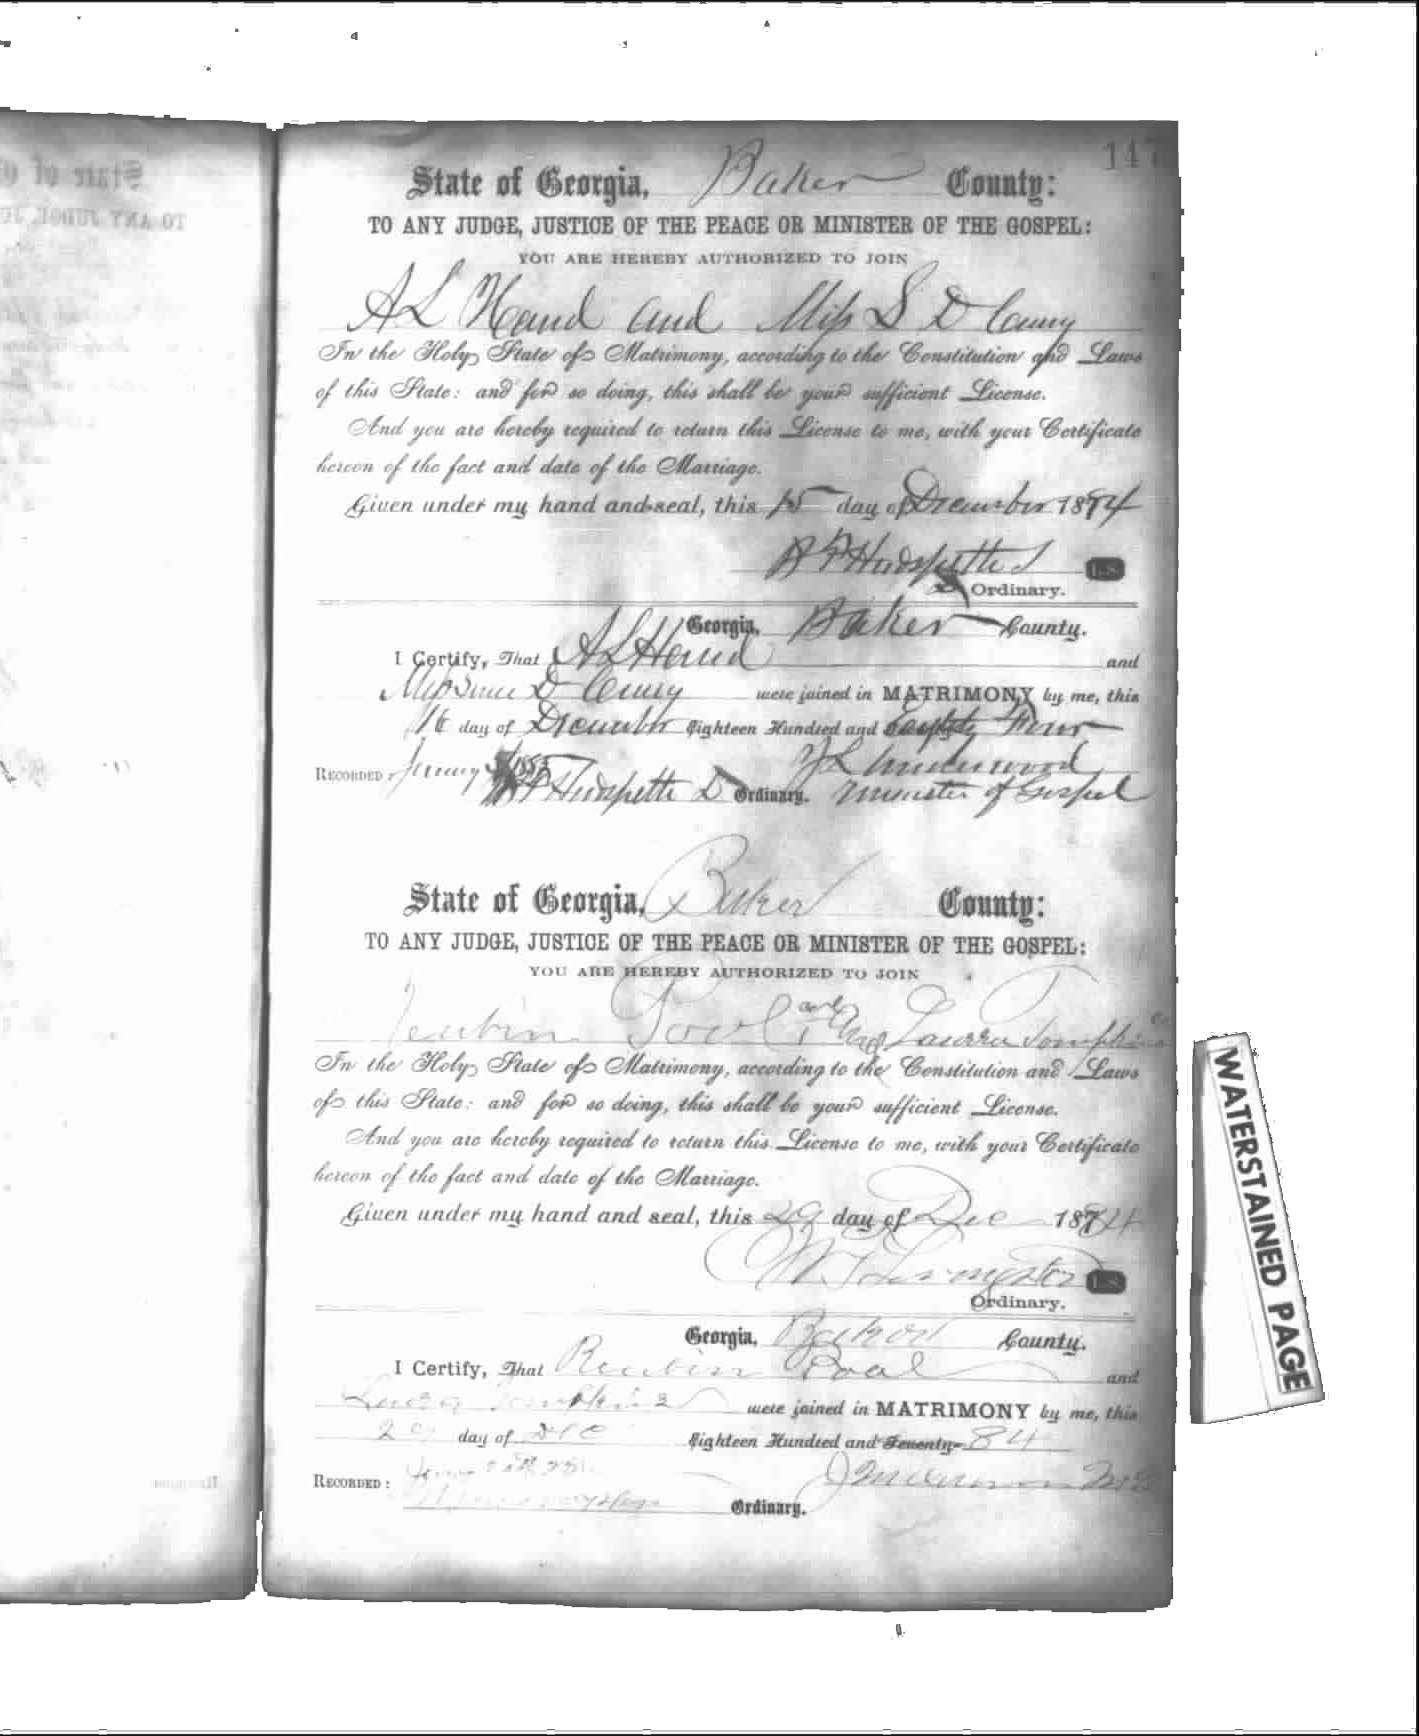 147
State of Georgia, Baker County:
TO ANY JUDGE, JUSTICE OF THE PEACE OR MINISTER OF THE GOSPEL:
YOU ARE HEREBY AUTHORIZED TO JOIN
A L Hand and Miss S D
In the Holy State of Matrimony, according to the Constitution and Laws
of this State: and for so doing, this shall be your sufficient License.
And you are hereby required to return this License to me, with your Certificate
hereon of the fact and date of the Marriage.
Given under my hand and seal, this 15 day of December 1884
L.S.
Ordinary.
Georgia, Baker County.
I Certify, That A L Hand and
Miss D were joined in MATRIMONY by me, this
16 day of December Eighteen Hundred and Eighty Four
J L Underwood
RECORDED Ordinary. minister of Gospel
State of Georgia, Baker County:
TO ANY JUDGE, JUSTICE OF THE PEACE OR MINISTER OF THE GOSPEL:
YOU ARE HEREBY AUTHORIZED TO JOIN
and Laura Tompkins
In the Holy State of Matrimony, according to the Constitution and Laws
of this State: and for so doing, this shall be your sufficient License.
And you are hereby required to return this License to me, with your Certificate
hereon of the fact and date of the Marriage.
Given under my hand and seal, this 29 day of Dec 1884
L.S.
Ordinary.
Georgia, Baker County.
I Certify, That Reubin Poal and
were joined in MATRIMONY by me, this
29 day of Dec Eighteen Hundred and Seventy- 84
RECORDED:
Ordinary.
WATERSTAINED PAGE